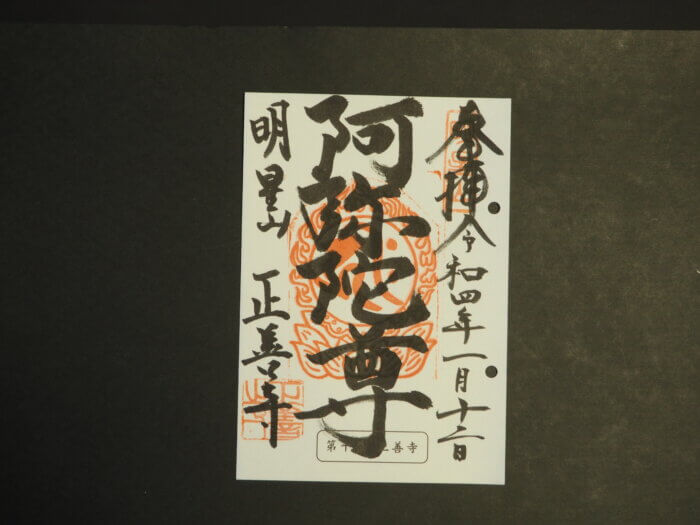 奉拝 令和四年一月十二日
阿弥陀尊
明星山 正善寺
第十 正善寺